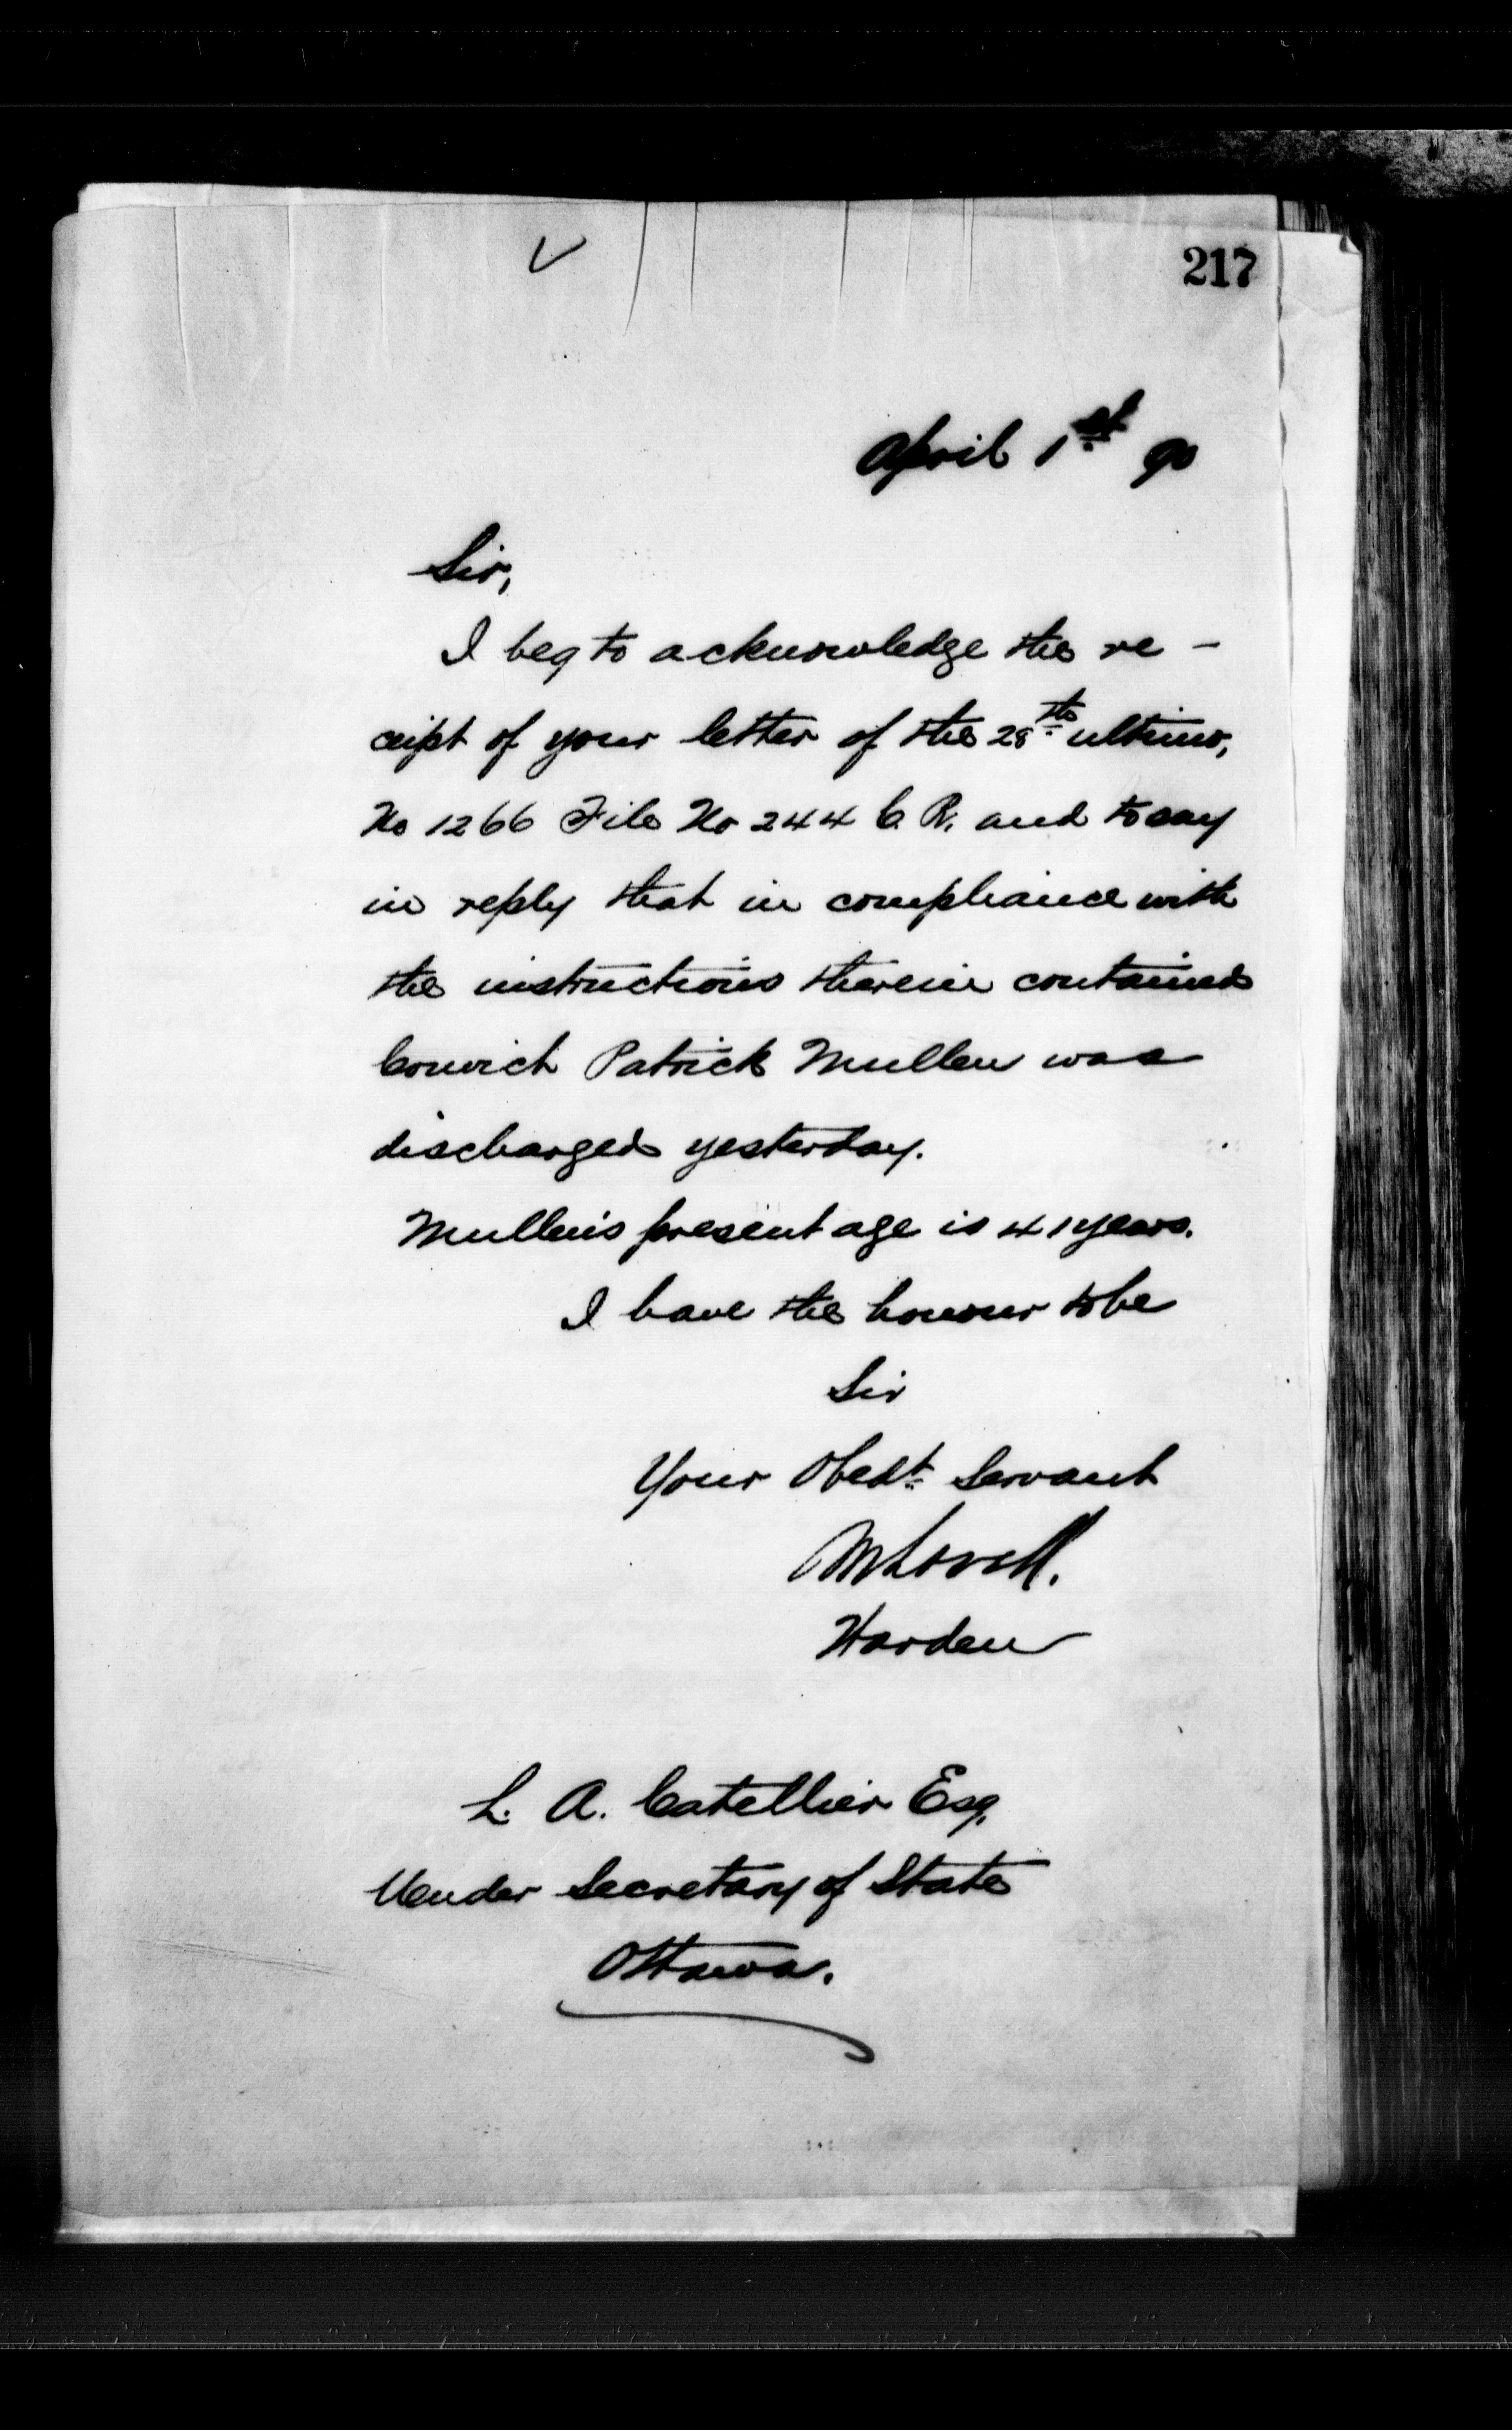 217
April 1st 90
Sir,
I beg to acknowledge the re-
ceipt of your letter of the 28th ultimo,
No 1266 File No 244 C. R. and to say
in reply that in compliance with
the instructions therein contained
Convict Patrick Mullen was
discharged yesterday.
Mullen's present age is 41 years.
I have the honour to be
Sir
Your Obedt Servant
M Lavell.
Warden
L. A. Catellier Esq.
Under Secretary of State
Ottawa.